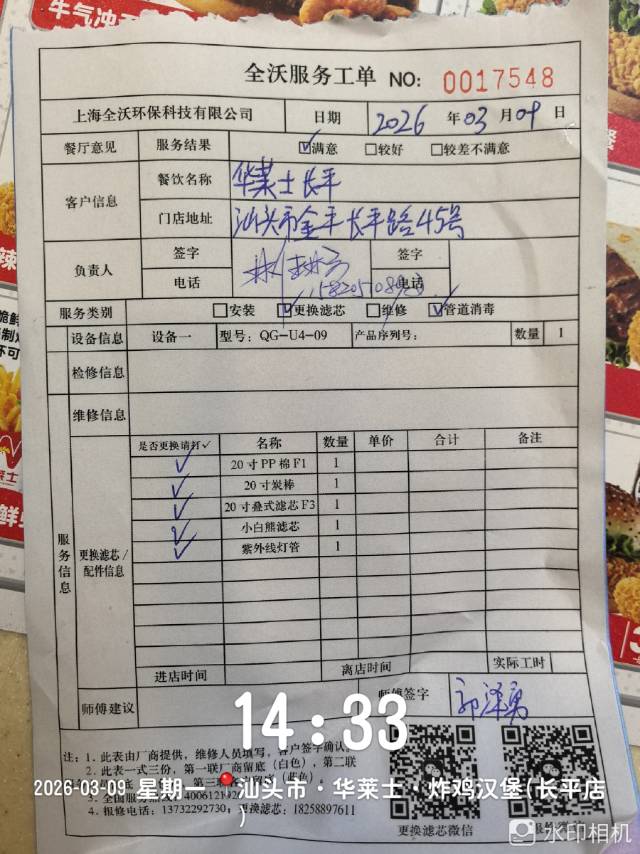 牛气冲天
全沃服务工单 NO: 0017548
上海全沃环保科技有限公司 日期 2026 年 03 月 09 日
餐厅意见 服务结果 ☑满意 □较好 □较差不满意
客户信息 餐饮名称 华莱士长平
门店地址 汕头市金平长平路45号
负责人 签字 签字
电话 电话
服务类别 □安装 ☑更换滤芯 □维修 ☑管道消毒
设备信息 设备一 型号: QG-U4-09 产品序列号: 数量 1
检修信息
维修信息
服务信息
更换滤芯/配件信息
是否更换请打✓ 名称 数量 单价 合计 备注
✓ 20寸PP棉F1 1
✓ 20寸炭棒 1
✓ 20寸叠式滤芯F3 1
✓ 小白熊滤芯 1
✓ 紫外线灯管 1
进店时间 离店时间 实际工时
师傅建议 师傅签字 郭泽勇
14:33
注: 1. 此表由厂商提供, 维修人员填写, 客户签字确认。
2. 此表一式三份, 第一联厂商留底(白色), 第二联
2026-03-09 星期一 汕头市·华莱士·炸鸡汉堡(长平店)
4. 报修电话: 13732292730; 更换滤芯: 18258897611
更换滤芯微信
水印相机